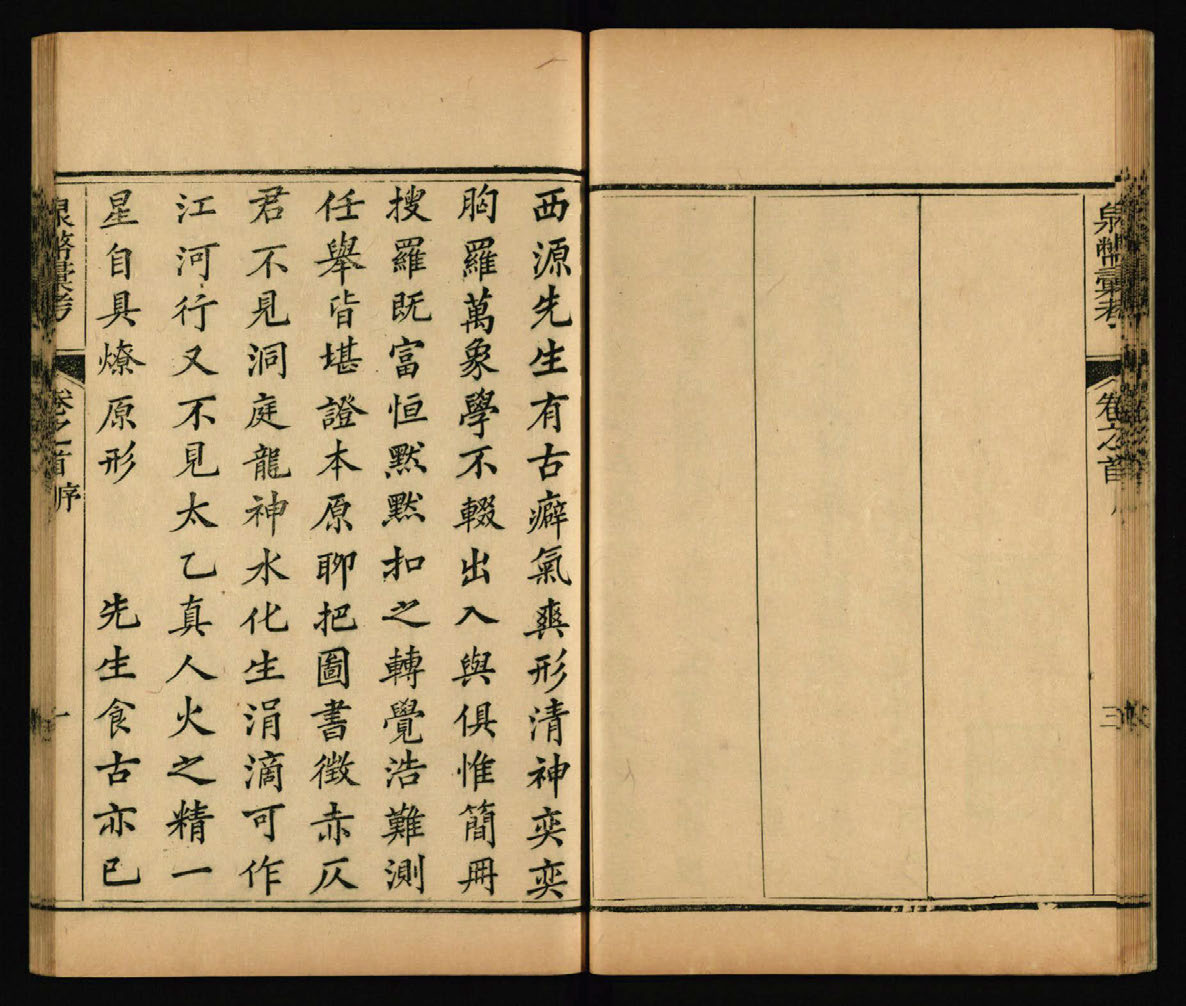 泉幣彙考
卷之首
三
西源先生有古癖氣爽形清神奕奕
胸羅萬象學不輟出入與俱惟簡冊
搜羅既富恒默默扣之轉覺浩難測
任舉皆堪證本原聊把圖書徵赤仄
君不見洞庭龍神水化生涓滴可作
江河行又不見太乙真人火之精一
星自具燎原形　先生食古亦已
泉幣彙考
卷之首
序
一